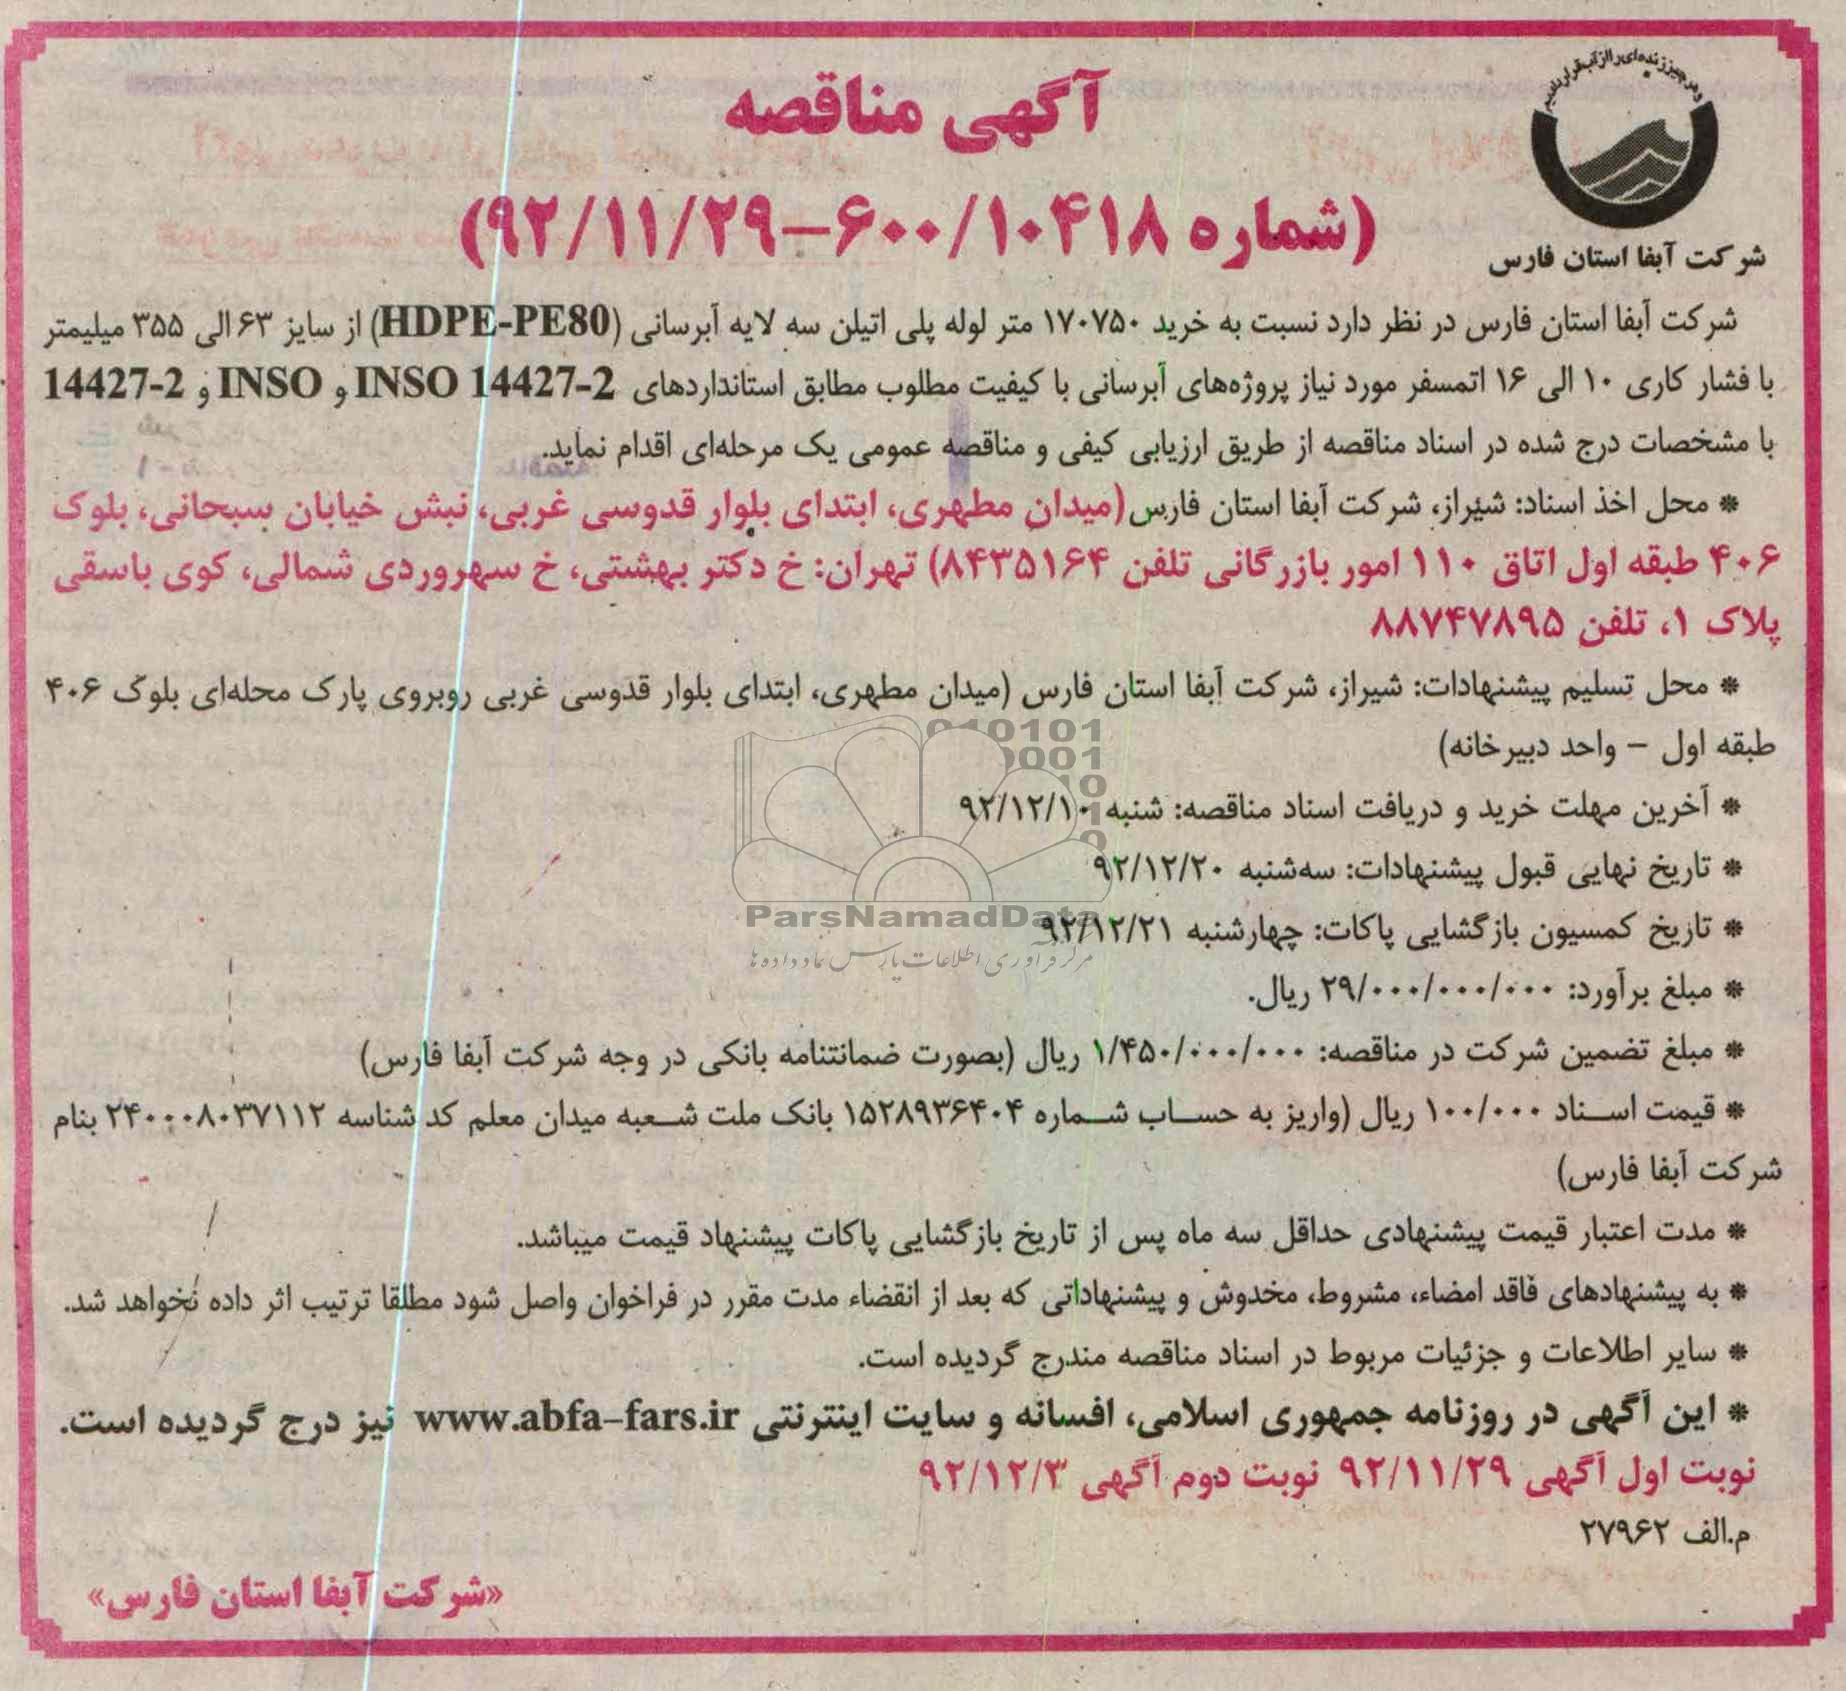 و هر چیز زنده‌ای را از آب قرار دادیم
شرکت آبفا استان فارس
آگهی مناقصه
(شماره ۶۰۰/۱۰۴۱۸–۹۲/۱۱/۲۹)
شرکت آبفا استان فارس در نظر دارد نسبت به خرید ۱۷۰۷۵۰ متر لوله پلی اتیلن سه لایه آبرسانی (HDPE-PE80) از سایز ۶۳ الی ۳۵۵ میلیمتر
با فشار کاری ۱۰ الی ۱۶ اتمسفر مورد نیاز پروژه‌های آبرسانی با کیفیت مطلوب مطابق استانداردهای INSO 14427-2 و INSO و 14427-2
با مشخصات درج شده در اسناد مناقصه از طریق ارزیابی کیفی و مناقصه عمومی یک مرحله‌ای اقدام نماید.
* محل اخذ اسناد: شیراز، شرکت آبفا استان فارس (میدان مطهری، ابتدای بلوار قدوسی غربی، نبش خیابان سبحانی، بلوک
۴۰۶ طبقه اول اتاق ۱۱۰ امور بازرگانی تلفن ۸۴۳۵۱۶۴) تهران: خ دکتر بهشتی، خ سهروردی شمالی، کوی باسقی
پلاک ۱، تلفن ۸۸۷۴۷۸۹۵
* محل تسلیم پیشنهادات: شیراز، شرکت آبفا استان فارس (میدان مطهری، ابتدای بلوار قدوسی غربی روبروی پارک محله‌ای بلوک ۴۰۶
طبقه اول – واحد دبیرخانه)
* آخرین مهلت خرید و دریافت اسناد مناقصه: شنبه ۹۲/۱۲/۱۰
* تاریخ نهایی قبول پیشنهادات: سه‌شنبه ۹۲/۱۲/۲۰
* تاریخ کمسیون بازگشایی پاکات: چهارشنبه ۹۲/۱۲/۲۱
ParsNamadData
مرکز فرآوری اطلاعات پارس نماد داده ها
* مبلغ برآورد: ۲۹/۰۰۰/۰۰۰/۰۰۰ ریال.
* مبلغ تضمین شرکت در مناقصه: ۱/۴۵۰/۰۰۰/۰۰۰ ریال (بصورت ضمانتنامه بانکی در وجه شرکت آبفا فارس)
* قیمت اسناد ۱۰۰/۰۰۰ ریال (واریز به حساب شماره ۱۵۲۸۹۳۶۴۰۴ بانک ملت شعبه میدان معلم کد شناسه ۲۴۰۰۰۸۰۳۷۱۱۲ بنام
شرکت آبفا فارس)
* مدت اعتبار قیمت پیشنهادی حداقل سه ماه پس از تاریخ بازگشایی پاکات پیشنهاد قیمت میباشد.
* به پیشنهادهای فاقد امضاء، مشروط، مخدوش و پیشنهاداتی که بعد از انقضاء مدت مقرر در فراخوان واصل شود مطلقا ترتیب اثر داده نخواهد شد.
* سایر اطلاعات و جزئیات مربوط در اسناد مناقصه مندرج گردیده است.
* این آگهی در روزنامه جمهوری اسلامی، افسانه و سایت اینترنتی www.abfa-fars.ir نیز درج گردیده است.
نوبت اول آگهی ۹۲/۱۱/۲۹ نوبت دوم آگهی ۹۲/۱۲/۳
م.الف ۲۷۹۶۲
«شرکت آبفا استان فارس»